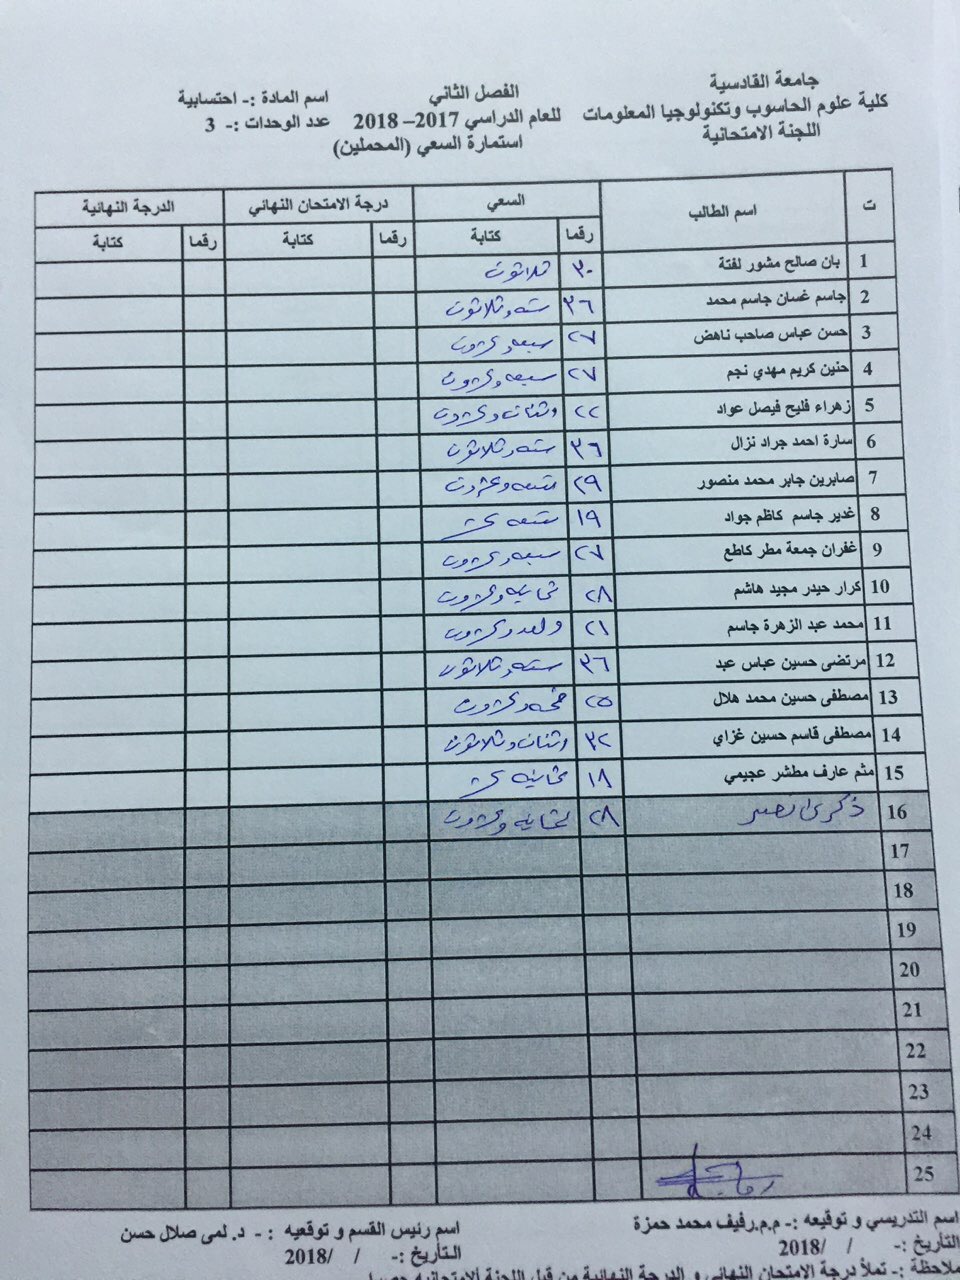 جامعة القادسية
كلية علوم الحاسوب وتكنولوجيا المعلومات
اللجنة الامتحانية
الفصل الثاني
للعام الدراسي 2017– 2018
استمارة السعي (المحملين)
اسم المادة :- احتسابية
عدد الوحدات :- 3
ت اسم الطالب السعي درجة الامتحان النهائي الدرجة النهائية
رقما كتابة رقما كتابة رقما كتابة
1 بان صالح مشور لفتة ٣٠ ثلاثون
2 جاسم غسان جاسم محمد ٣٦ ستة وثلاثون
3 حسن عباس صاحب ناهض ٢٧ سبعة وعشرون
4 حنين كريم مهدي نجم ٢٧ سبعة وعشرون
5 زهراء فليح فيصل عواد ٢٢ اثنان وعشرون
6 سارة احمد جراد نزال ٣٦ ستة وثلاثون
7 صابرين جابر محمد منصور ٢٩ تسعة وعشرون
8 غدير جاسم كاظم جواد ١٩ تسعة عشر
9 غفران جمعة مطر كاطع ٢٧ سبعة وعشرون
10 كرار حيدر مجيد هاشم ٢٨ ثمانية وعشرون
11 محمد عبد الزهرة جاسم ٢١ واحد وعشرون
12 مرتضى حسين عباس عبد ٣٦ ستة وثلاثون
13 مصطفى حسين محمد هلال ٢٥ خمسة وعشرون
14 مصطفى قاسم حسين غزاي ٣٢ اثنان وثلاثون
15 مثم عارف مطشر عجيمي ١٨ ثمانية عشر
16 ذكرى ٢٨ ثمانية وعشرون
17
18
19
20
21
22
23
24
25
اسم التدريسي و توقيعه :- م.م.رفيف محمد حمزة
التأريخ :- / /2018
اسم رئيس القسم و توقعيه :- د. لمى صلال حسن
التأريخ :- / /2018
ملاحظة :- تملأ درجة الامتحان النهائي و الدرجة النهائية من قبل اللجنة ألامتحانيه